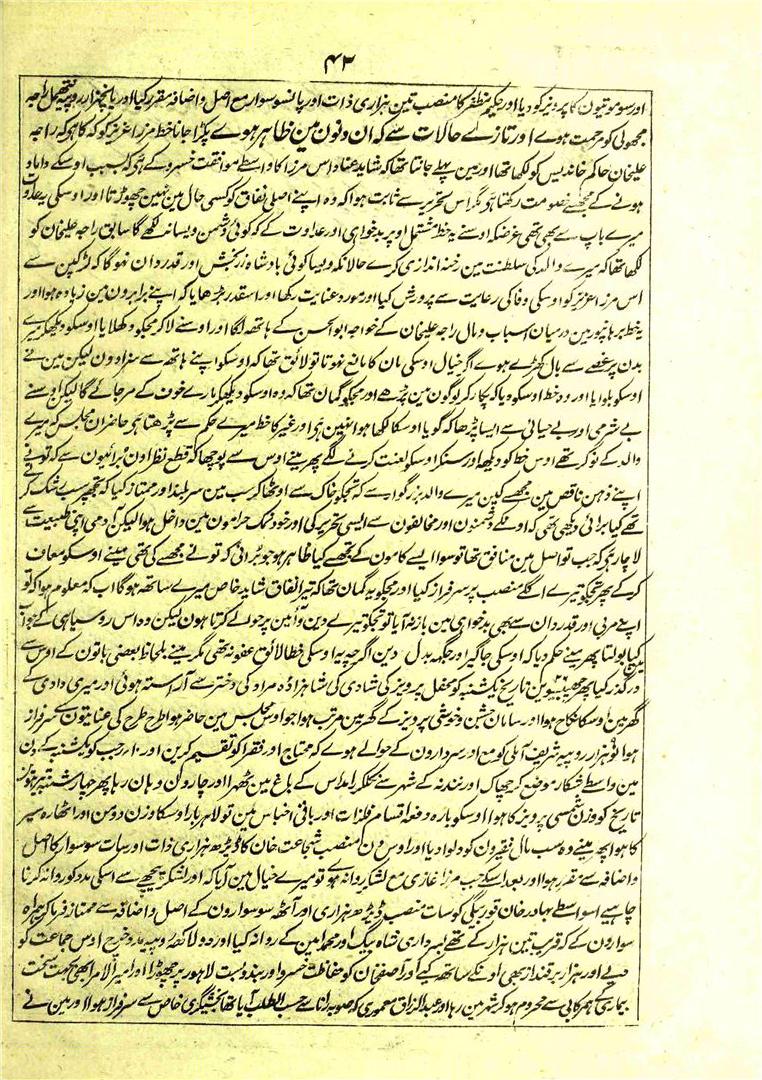 ۴۲
اور سو موتیون کا پرویز کو دیا اور حکیم مظفر کا منصب تین ہزاری ذات اور پانسو سوار مع اصل و اضافہ مقرر کیا اور پانچہزار روپیہ نتھمل راجہ
مجھولی کو مرحمت ہوے اور تازے حالات سے کہ ان دنون مین ظاہر ہوے پکڑا جانا خط مرزا عزیز کوکہ کا ہو کہ راجہ
علیخان حاکم خاندیس کو لکھا تھا اور مین پہلے جانتا تھا کہ شاید عناد اس مرزا کا واسطے موافقت خسرو کے ہی کہ بسبب اوسکے داماد
ہونے کے مجھسے خصومت رکھتا ہو مگر اس تحریر سے ثابت ہوا کہ وہ اپنے اصلی نفاق کو کسی حال مین نہین چھوڑتا اور اوسکی یہ عداوت
میرے باپ سے بھی تھی غرضکہ اوسنے یہ خط مشتمل اوپر بدخواہی اور عداوت کے کہ کوئی دشمن ویسا نہ لکھے گا سابق راجہ علیخان کو
لکھا تھا کہ میرے والد کی سلطنت مین رخنہ اندازی کرے حالانکہ ویسا کوئی بادشاہ زربخش اور قدردان نہوگا کہ لڑکپن سے
اس مرزا عزیز کو اوسکی وفا کی رعایت سے پرورش کیا اور مورد عنایت رکھا اور اسقدر بڑھایا کہ اپنے برابرون مین زیادہ ہوا اور
یہ خط برہانپور مین درمیان اسباب و مال راجہ علیخان کے خواجہ ابوالحسن کے ہاتھ لگا اور اوسنے لاکر مجکو دکھلایا اوسکو دیکھکر میرے
بدن پر غصے سے بال کھڑے ہوے اگر خیال اوسکی مان کا مانع نہوتا تو لائق تھا کہ اوسکو اپنے ہاتھ سے سزا دون لیکن مین نے
اوسکو بلوایا اور وہ خط اوسکو دیا کہ پکار کر لوگون مین پڑھے اور مجکو گمان تھا کہ وہ اوسکو دیکھکر مارے خوف کے مر جائے گا لیکن اوسنے
بے شرمی اور بے حیائی سے ایسا پڑھا کہ گویا اوسکا لکھا ہوا نہین ہی اور غیر کا خط میرے حکم سے پڑھتا ہو حاضران مجلس کہ میرے
والد کے نوکر تھے اوس خط کو دیکھ اور سنکر اوسکو لعنت کرنے لگے پھر مینے اوس سے پوچھا کہ قطع نظر اون برائیون سے کہ تونے
اپنے ذہن ناقص مین مجھسے کین میرے والد بزرگوار سے کہ تجکو خاک سے اوٹھا کر سب مین سربلند اور ممتاز کیا کہ تجھپر سب رشک کرتے
تھے کیا برائی دیکھی تھی کہ اونکے دشمنون اور مخالفون سے ایسی تحریر کی اور خود نمک حرامون مین داخل ہوا لیکن آدمی اپنی طبیعت سے
لاچار ہی کہ جب تو اصل مین منافق تھا تو سوا ایسے کامون کے تجھسے کیا ظاہر ہو جو برائی کہ تونے مجھسے کی تھی مینے اوسکو معاف
کرکے پھر تجکو تیرے اگلے منصب پر سرفراز کیا اور مجکو یہ گمان تھا کہ تیرا نفاق شاید خاص میرے ساتھ ہو گا اب کہ معلوم ہوا کہ تو
اپنے مربی اور قدردان سے بھی بدخواہی مین باز نہ آیا تو تجکو تیرے دین و آئین پر حوالے کرتا ہون لیکن وہ اس روسیاہی کے جواب
مین کیا بولتا پھر مینے حکم دیا کہ اوسکی جاگیر اور جگہ بدل دین اگرچہ یہ اوسکی خطا لائق عفو نہ تھی مگر مینے بلحاظ بعضی باتون کے اوس سے
درگذر کیا پھر چھبیسوین ۲۶ تاریخ یکشنبہ کو محفل پرویز کی شادی کی شاہزادہ مراد کی دختر سے آراستہ ہوئی اور میری دادی کے
گھر مین اوسکا نکاح ہوا اور سامان جشن و خوشی پرویز کے گھر مین مرتب ہوا جو اوس مجلس مین حاضر ہوا طرح طرح کی عنایتون سے سرفراز
ہوا نو ہزار روپیہ شریف آملی کو مع اور سردارون کے حوالے ہوے کہ محتاج اور فقرا کو تقسیم کرین اور ۱۰ رجب کو یکشنبہ کے دن
مین واسطے شکار موضع کرچھاک اور نندنہ کے شہر سے نکلکر رامداس کے باغ مین ٹھہرا اور چار دن وہان رہا پھر چہار شنبہ تیرھوین
تاریخ کو وزن شمسی پرویز کا ہوا اوسکو بارہ دفعہ اقسام فلزات اور باقی اجناس مین تولا ہر بار اوسکا وزن دو من اور اٹھارہ سیر
کا ہوا پھر مینے وہ سب مال فقیرون کو دلوا دیا اور اوس دن منصب شجاعت خان کا ڈیڑھ ہزاری ذات اور سات سو سوار کا اصل
و اضافہ سے مقرر ہوا اور بعد اسکے جب مرزا غازی مع لشکر روانہ ہوے تو میرے خیال مین آیا کہ اور لشکر پیچھے سے اسکی مدد کو روانہ کرنا
چاہیے اسواسطے بہادر خان قوربیگی کو سات منصب ڈیڑھ ہزاری اور آٹھ سو سوارون کے اصل و اضافہ سے ممتاز فرما کر ہمراہ
سوارون کے کہ قریب تین ہزار کے تھے بسرداری شاہ بیگ اور محمد امین کے روانہ کیا اور دو لاکھ روپیہ مدد خرچ اوس جماعت کو
دیے اور ہزار برقنداز بھی اونکے ساتھ کیے اور آصفخان کو حفاظت خسرو اور بندوبست لاہور پر چھوڑا اور امیر الامرا بھی بجہت سخت
بیماری کے ہمرکابی سے محروم ہو کر شہر مین رہا اور عبدالرزاق معموری کہ صوبہ رانا سے حسب الطلب آیا تھا بخشیگری خاص سے سرفراز ہوا اور مین نے